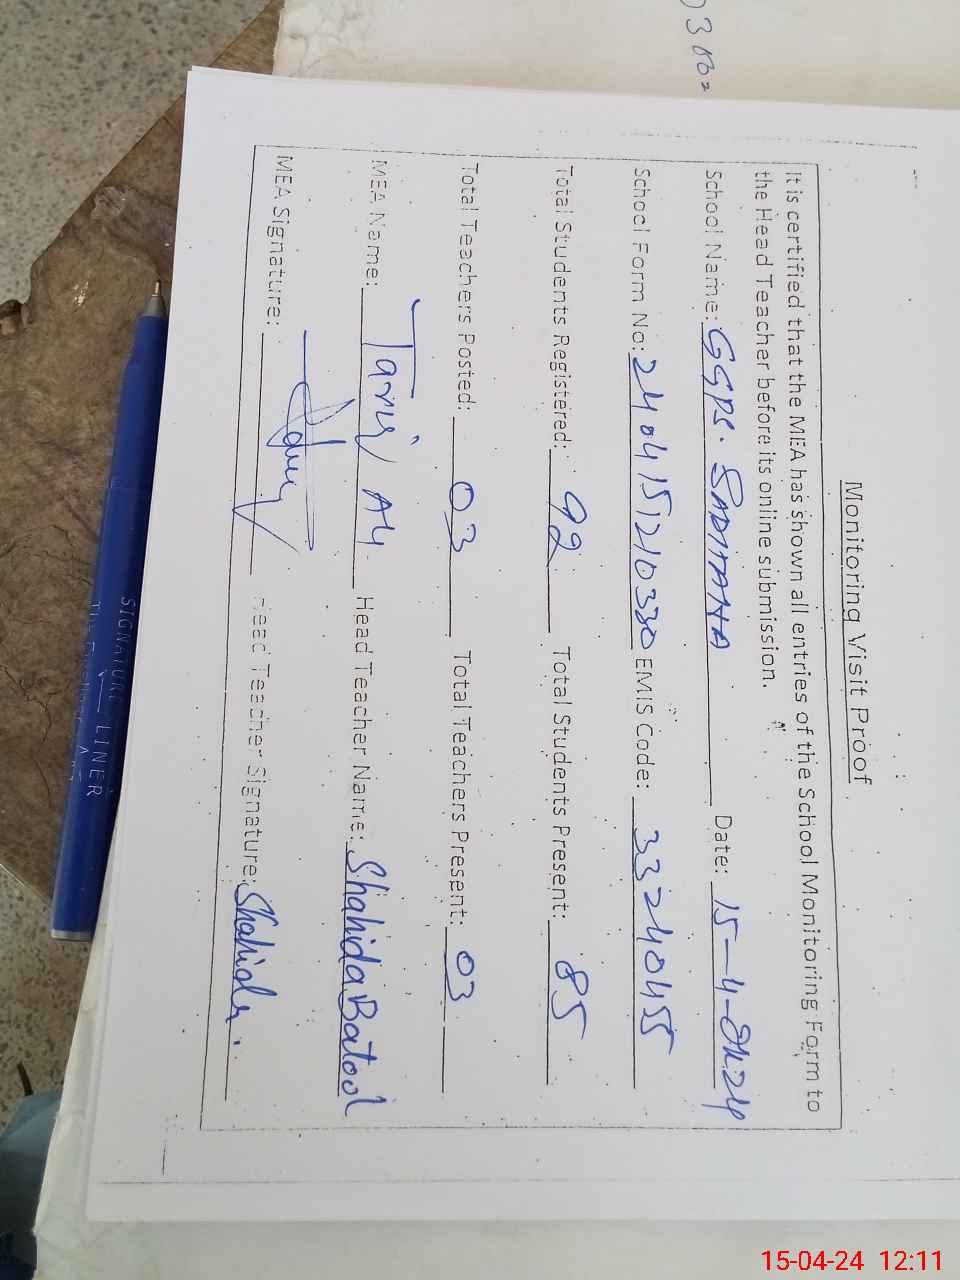 Monitoring Visit Proof
It is certified that the MEA has shown all entries of the School Monitoring Form to
the Head Teacher before its online submission.
School Name: GGPS. SADHANA Date: 15-4-2024
School Form No: 240415210330 EMIS Code: 33240455
Total Students Registered: 92 Total Students Present: 85
Total Teachers Posted: 03 Total Teachers Present: 03
MEA Name: Tariq Ali Head Teacher Name: Shahida Batool
MEA Signature: Head Teacher Signature: Shahida.
SIGNATURE LINER
15-04-24 12:11